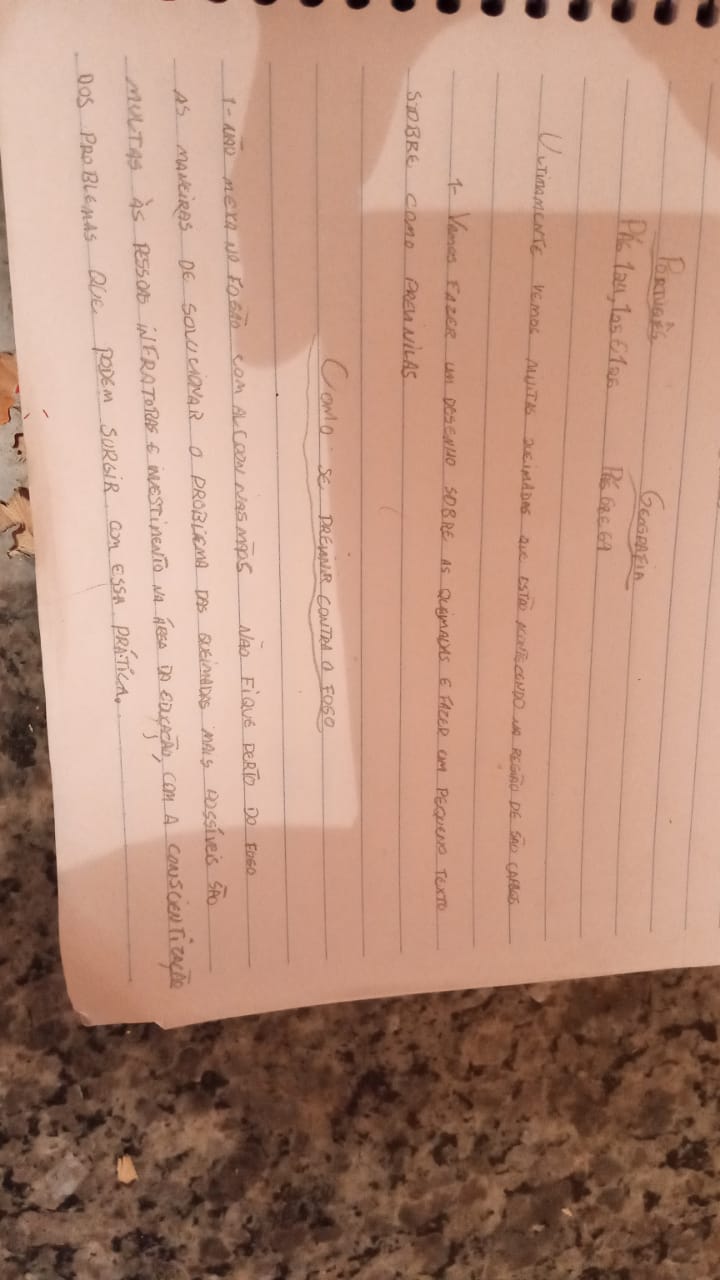 Português Geografia
Pág 124, 125 e 126 Pág 62 e 64
Ultimamente vemos muitas queimadas que estão acontecendo na região de São Carlos
1- Vamos fazer um desenho sobre as queimadas e fazer um pequeno texto
sobre como previnilas
Como se previnir contra o fogo
1- Não mexa no fogão com alcool nas mãos não fique perto do fogo
as maneiras de solucionar o problema das queimadas mais possíveis são
multas às pessoas infratoras e investimento na área da educação, com a conscientização
dos problemas que podem surgir com essa prática.